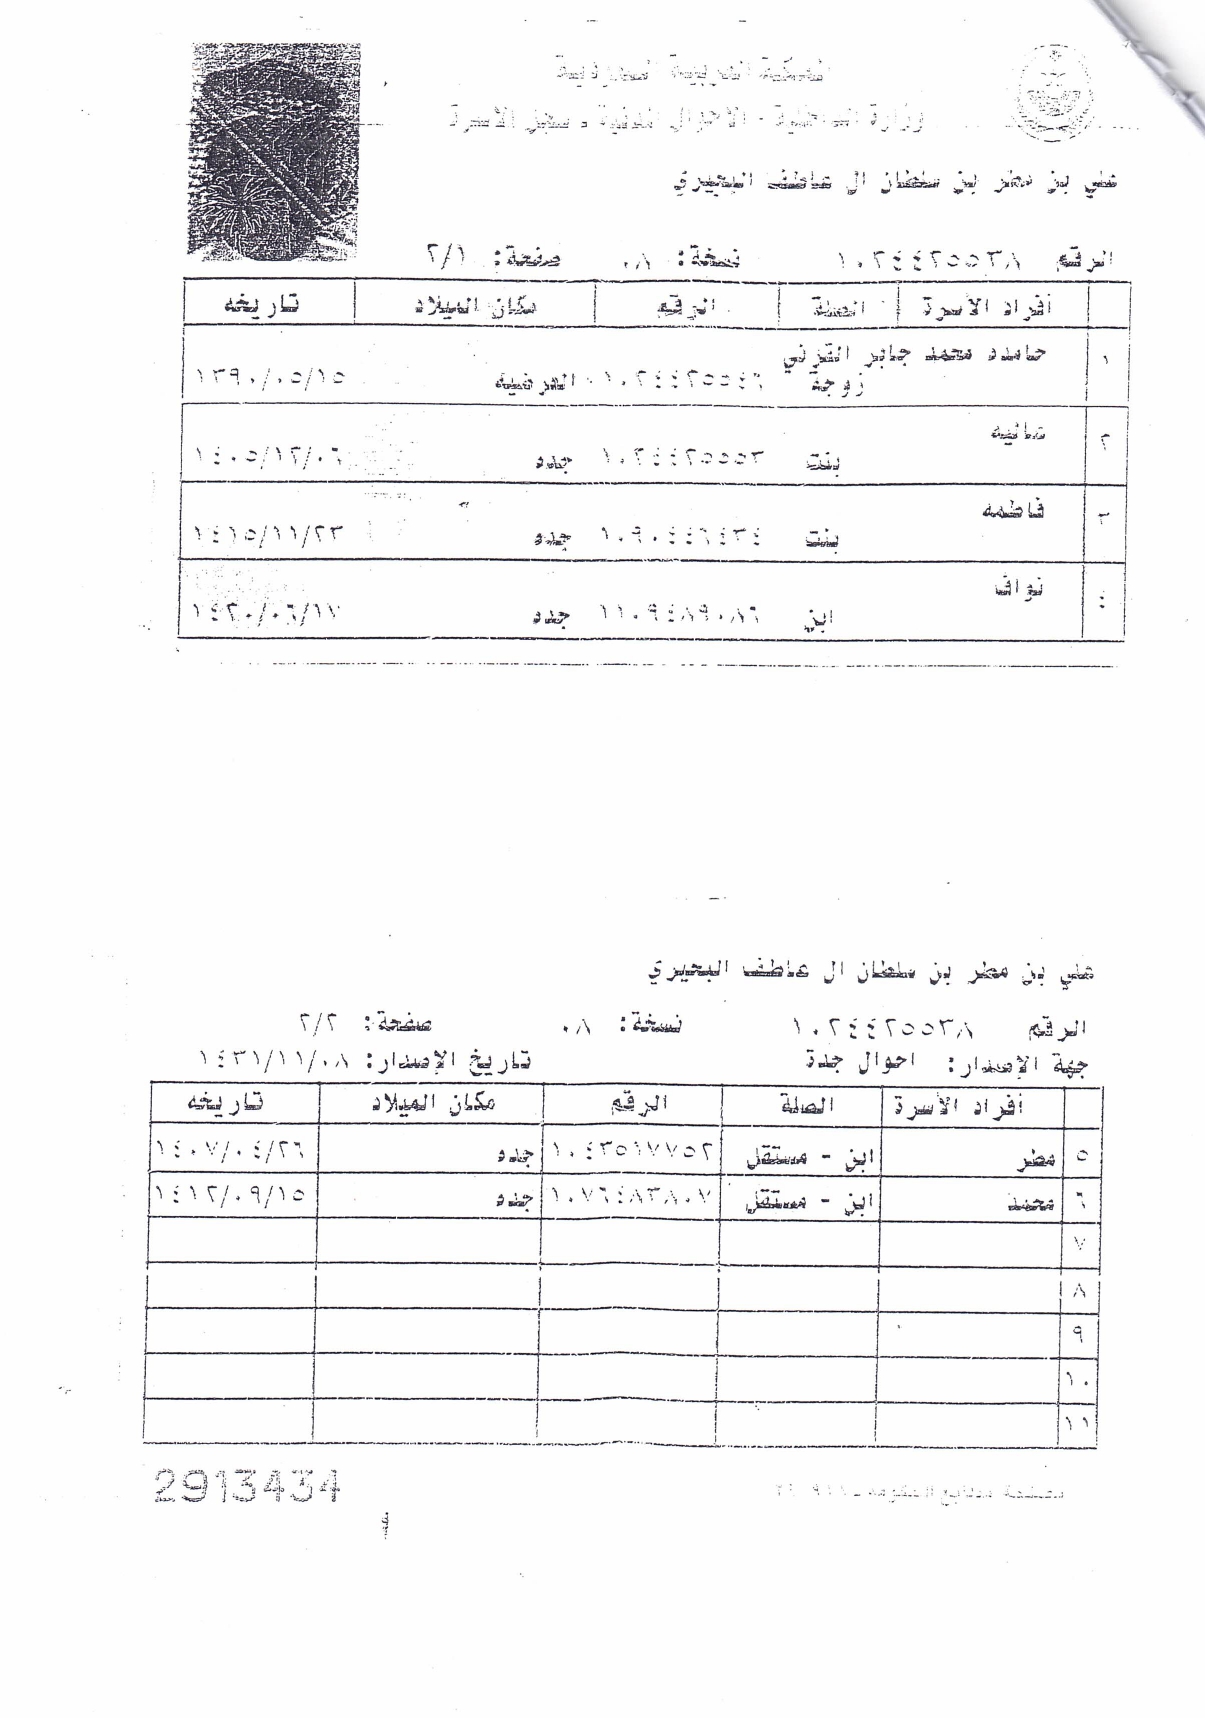 المملكة العربية السعودية
وزارة الداخلية - الاحوال المدنية - سجل الاسرة
علي بن مطر بن سلطان ال عاطف البحيري
الرقم ١٠٢٤٤٢٥٥٣٨ نسخة: ٠٨ صفحة: ٢/١
أفراد الأسرة الصلة الرقم مكان الميلاد تاريخه
١ حامده محمد جابر القرني
زوجة ١٠٢٤٤٢٥٥٤٦ العرضيه ١٣٩٠/٠٥/١٥
٢
بنت ١٠٢٤٤٢٥٥٥٣ جده ١٤٠٥/١٢/٠٦
٣ فاطمه
بنت ١٠٩٠٤٤٦٤٣٤ جده ١٤١٥/١١/٢٣
٤ نواف
ابن ١١٠٩٤٨٩٠٨٦ جده ١٤٢٠/٠٦/١٧
علي بن مطر بن سلطان ال عاطف البحيري
الرقم ١٠٢٤٤٢٥٥٣٨ نسخة: ٠٨ صفحة: ٢/٢
جهة الإصدار: احوال جدة تاريخ الإصدار: ١٤٣١/١١/٠٨
أفراد الأسرة الصلة الرقم مكان الميلاد تاريخه
٥ مطر ابن - مستقل ١٠٤٣٥١٧٧٥٢ جده ١٤٠٧/٠٤/٢٦
٦ محمد ابن - مستقل ١٠٧٦٤٨٣٨٠٧ جده ١٤١٢/٠٩/١٥
٧
٨
٩
١٠
١١
مطابع الحكومة
2913434